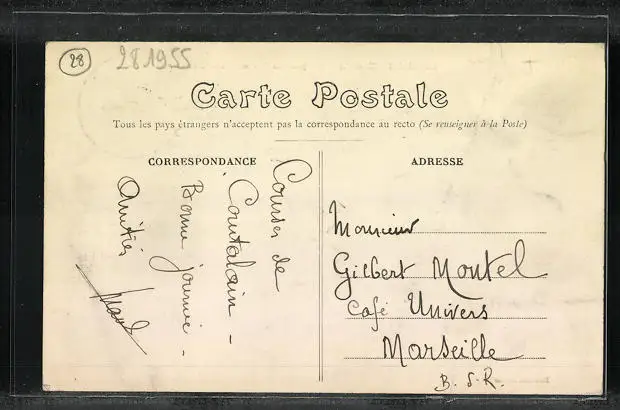 28
281955
Carte Postale
Tous les pays étrangers n'acceptent pas la correspondance au recto (Se renseigner à la Poste)
CORRESPONDANCE
Courses de
Courtalain -
Bonne journée -
Amitiés
ADRESSE
Monsieur
Gilbert Montel
Café Univers
Marseille
B. d. R.